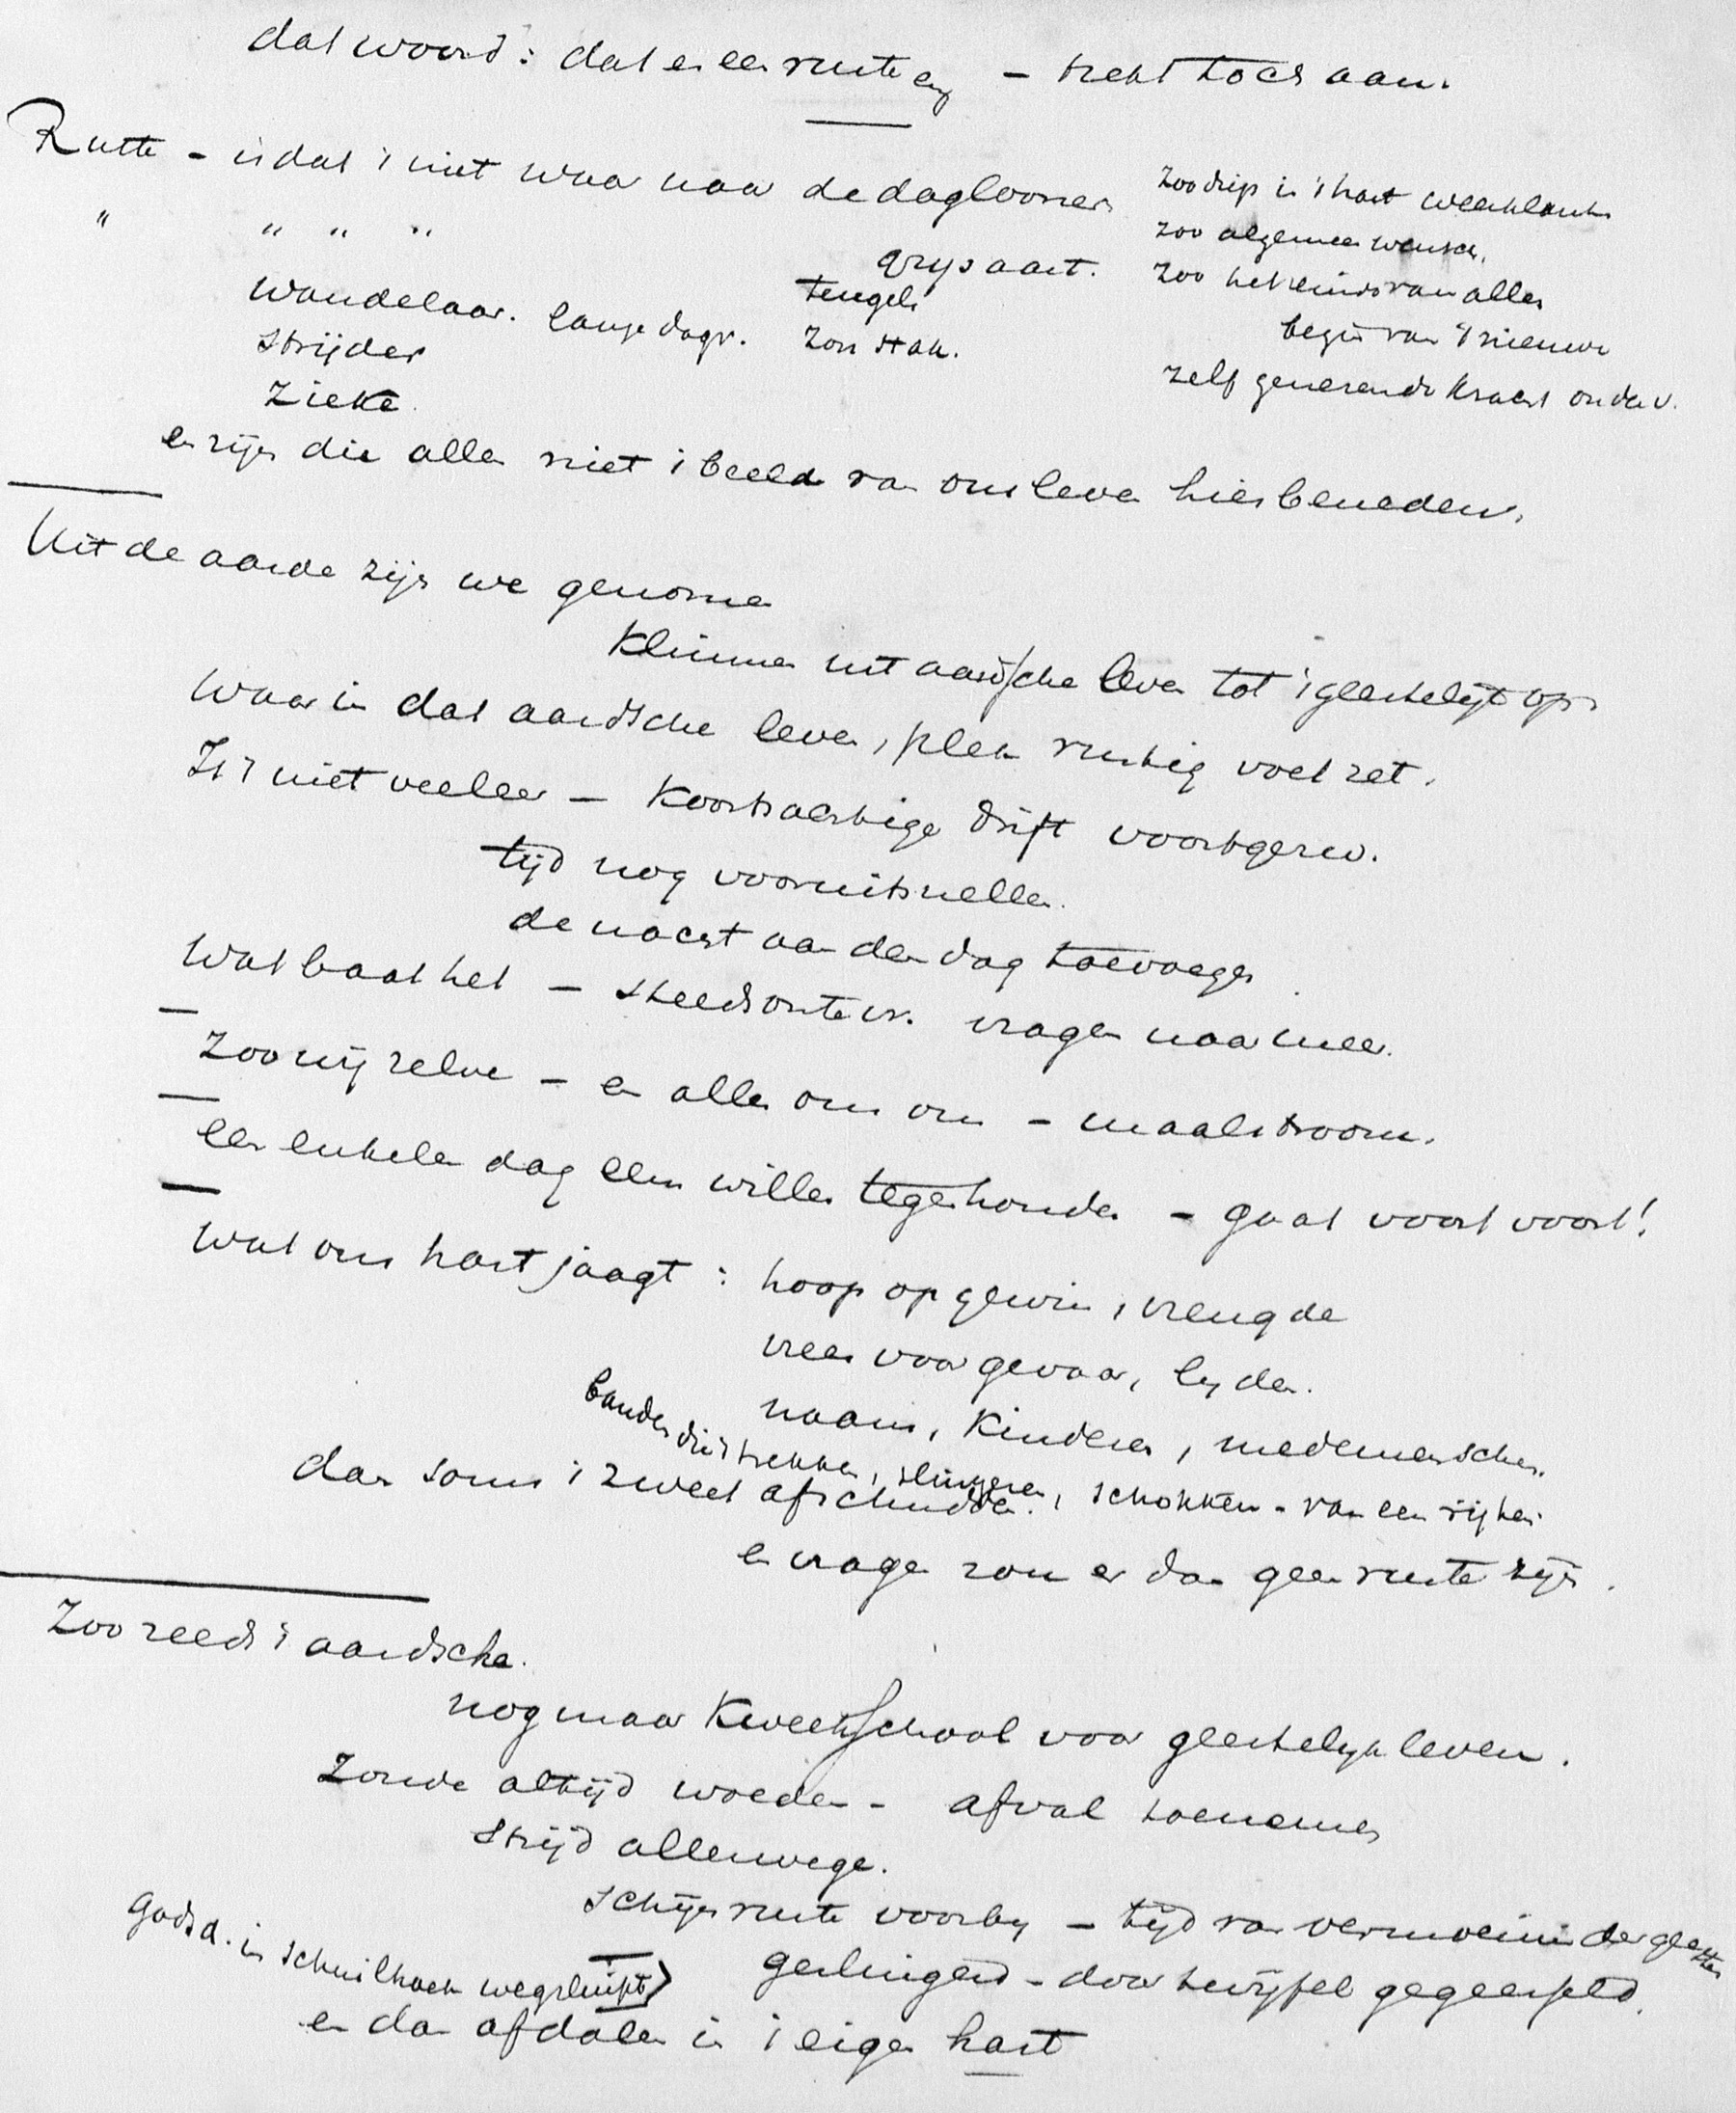 dat woord: dat er een ruste enz – trekt toch aan.
Ruste – is dat 't niet waar naar de daglooner
" " " " grijsaart.
Zoo diep in 't hart weerklank
zoo algemeen wensch.
zoo het einde van alles
begin van 't nieuwe
zelf genereende kracht onderv.
Wandelaar. lange dagr. tengels zon stak.
Strijder
Zieke.
en zijn die allen niet 't beeld van ons leven hier beneden.
Uit de aarde zijn we genomen
Klimmen uit aardsche leven tot 't geestelijk op.
Waar in dat aardsche leven, plek rustig voet zet.
Is 't niet veeleer – Koortsachtige drift voortgezw.
tijd nog vooruitsnellen.
de nacht aan den dag toevoegen.
Wat baat het – steeds ontevr. vragen naar meer.
Zoo wij zelve – en alles om ons – maalstroom.
een enkelen dag eens willen tegenhouden – gaat voort voort!
Wat ons hart jaagt: hoop op gewin, vreugde
vrees voor gevaar, lyden.
naam, Kinderen, medemenschen.
banden die 't trekken, slingeren, schokken – van een rijten
dan soms 't zweet afschudden.
en vragen zou er dan geen ruste zijn.
Zoo reeds 't aardsche.
nog maar Kweekschool voor geestelyk leven.
Zonde altijd woeden – afval toenemen
Strijd allerwege.
Schijnruste voorby – tijd van vermoeiing der geesten
geslingerd – door twijfel gegeeseld.
Godsd. in schuilhoek wegsluipt)
en dan afdalen in 't eigen hart